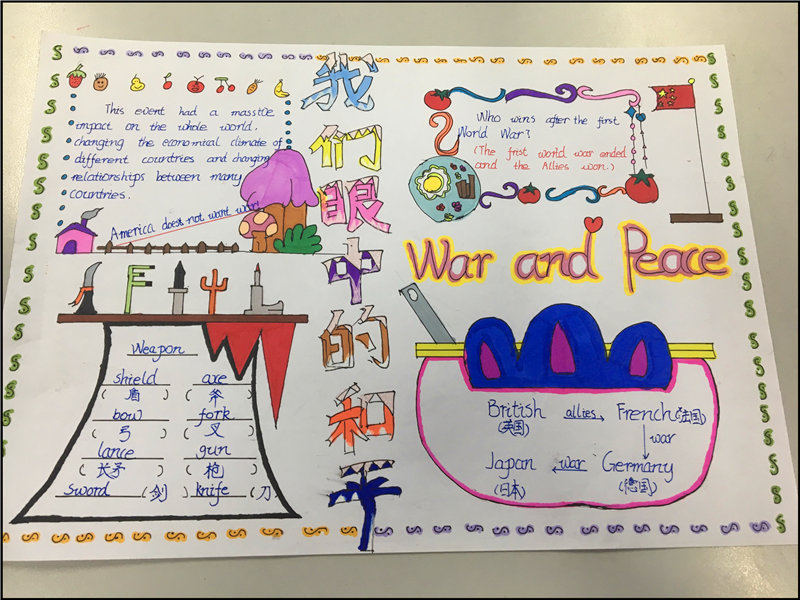 This event had a masstive
impact on the whole world,
changing the economial climate of
different countries and changing
relationships between many
countries.
America does not want war!
我们眼中的和平
Who wins after the first
World War?
(The frist world war ended
and the Allies won.)
War and Peace
Weapon
shield axe
(盾) (斧)
bow fork
(弓) (叉)
lance gun
(长矛) (枪)
sword (剑) knife (刀)
British allies French (法国)
(英国)
war
Japan war Germany
(日本) (德国)